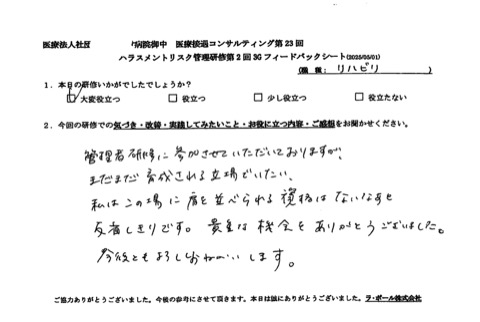 医療法人社団 病院御中 医療接遇コンサルティング第23回
ハラスメントリスク管理研修第2回3Gフィードバックシート(2025/05/01)
(職種:リハビリ)
1.本日の研修いかがでしたでしょうか?
☑大変役立つ □役立つ □少し役立つ □役立たない
2.今回の研修での気づき・改善・実践してみたいこと・お役に立つ内容・ご感想をお聞かせください。
管理者研修に参加させていただいておりますが、
まだまだ育成される立場でいたい。
私はこの場に肩を並べられる資格はないなあと
反省しきりです。貴重な機会をありがとうございました。
今後ともよろしくおねがいします。
ご協力ありがとうございました。今後の参考にさせて頂きます。本日は誠にありがとうございました。ラ・ポール株式会社